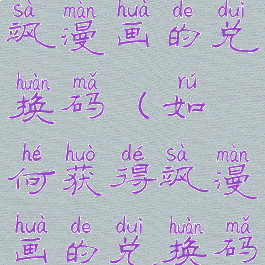 sà màn huà de duì
飒漫画的兑
huàn mǎ rú
换码（如
hé huò dé sà màn
何获得飒漫
huà de duì huàn mǎ
画的兑换码